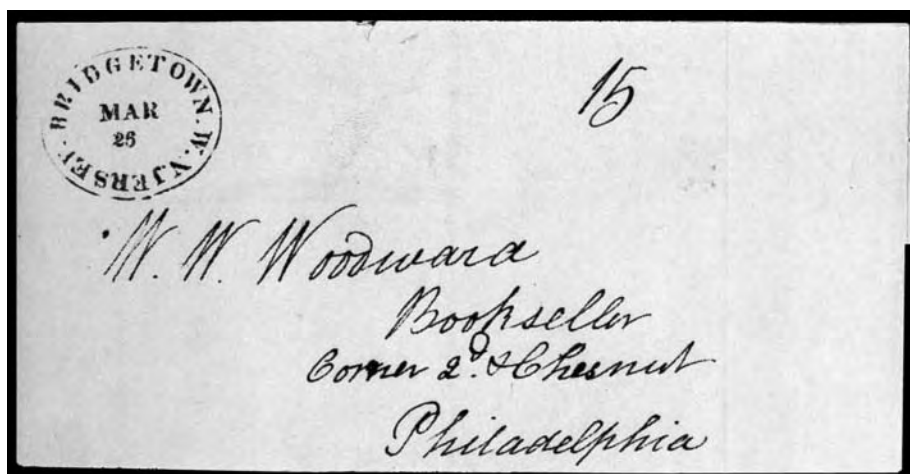 BRIDGETOWN W. N JERSEY.
MAR
25
15
W. W. Woodward
Bookseller
Corner 2d. & Chesnut
Philadelphia